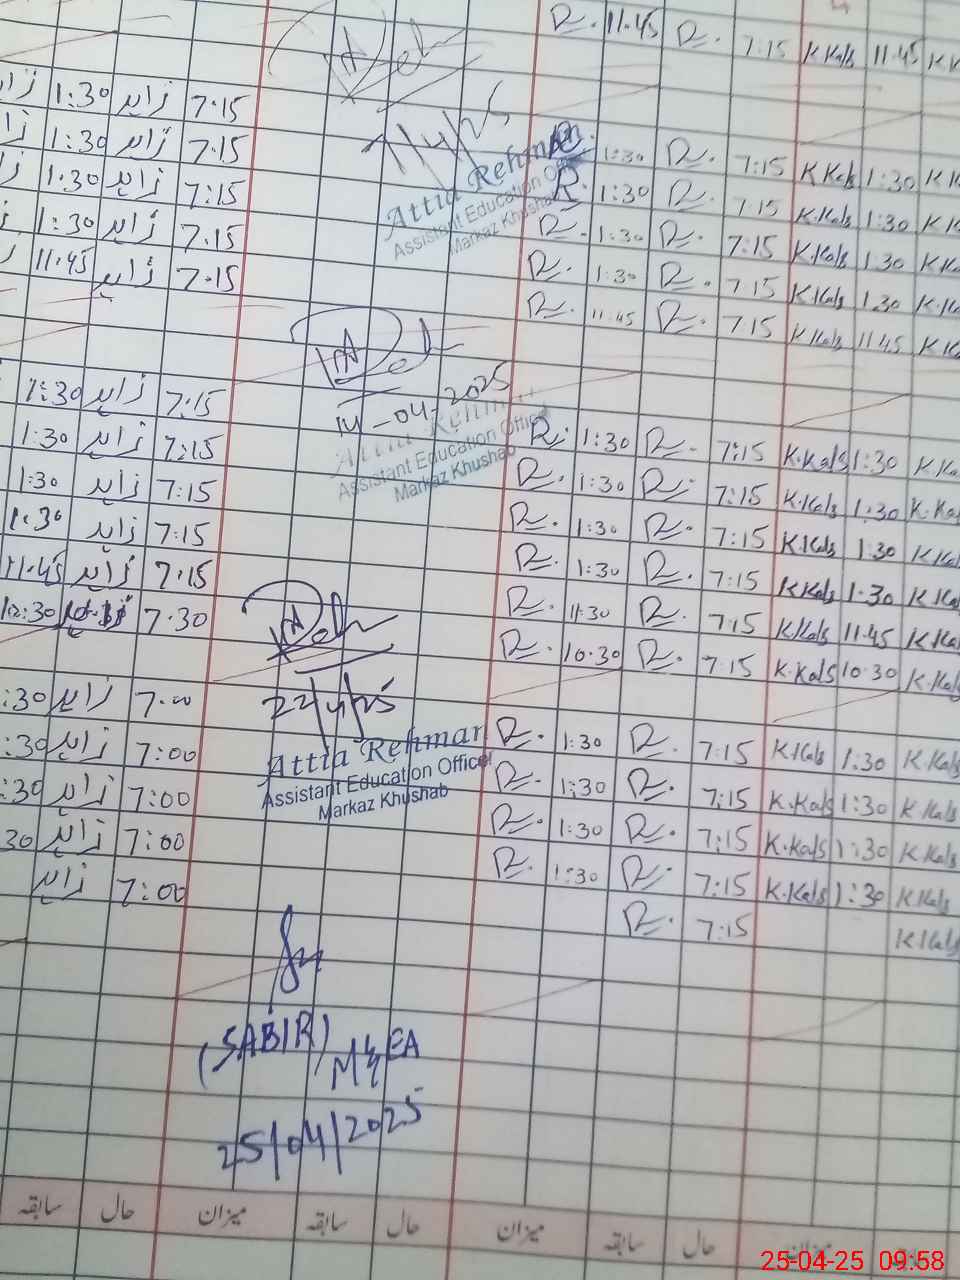 R. 11.45 R. 7:15 K Kals 11.45
1:30 زاہد 7.15
1:30 زاہد 7.15
1:30 زاہد 7:15
1:30 زاہد 7.15
11.45 زاہد 7.15
Attia Rehman
Assistant Education Officer
Markaz Khushab
1:30 R. 7:15 K Kals 1:30
R. 1:30 R. 7 15 K.Kals 1:30
R. 1:30 R. 7:15 K.Kals 1:30
R. 1:30 R. 7 15 K Kals 1.30
R. 11:45 R. 7:15 K Kals 11 45
1:30 زاہد 7:15
1:30 زاہد 7:15
1:30 زاہد 7:15
1:30 زاہد 7:15
11.45 زاہد 7.15
12:30 7.30
14-04-2025
Attia Rehman
Assistant Education Officer
Markaz Khushab
R. 1:30 R. 7:15 K.Kals 1:30
R. 1:30 R. 7:15 K.Kals 1:30 K.Kals
R. 1:30 R. 7:15 K.Kals 1:30 K Kals
R. 1:30 R. 7:15 K Kals 1.30 K Kals
R. 11:30 R. 7:15 K.Kals 11.45 K Kals
R. 10.30 R. 7:15 K.Kals 10.30 K.Kals
:30 زاہد 7.00
:30 زاہد 7:00
:30 زاہد 7:00
30 زاہد 7:00
زاہد 7:00
22/4/25
Attia Rehman
Assistant Education Officer
Markaz Khushab
R. 1:30 R. 7:15 K.Kals 1:30 K.Kals
R. 1:30 R. 7:15 K.Kals 1:30 K.Kals
R. 1:30 R. 7:15 K.Kals 1:30 K Kals
R. 1:30 R. 7:15 K.Kals 1:30 K Kals
R. 7:15 K Kals
(SABIR) M&EA
25/04/2025
سابقہ حال میزان سابقہ حال میزان سابقہ حال میزان
25-04-25 09:58